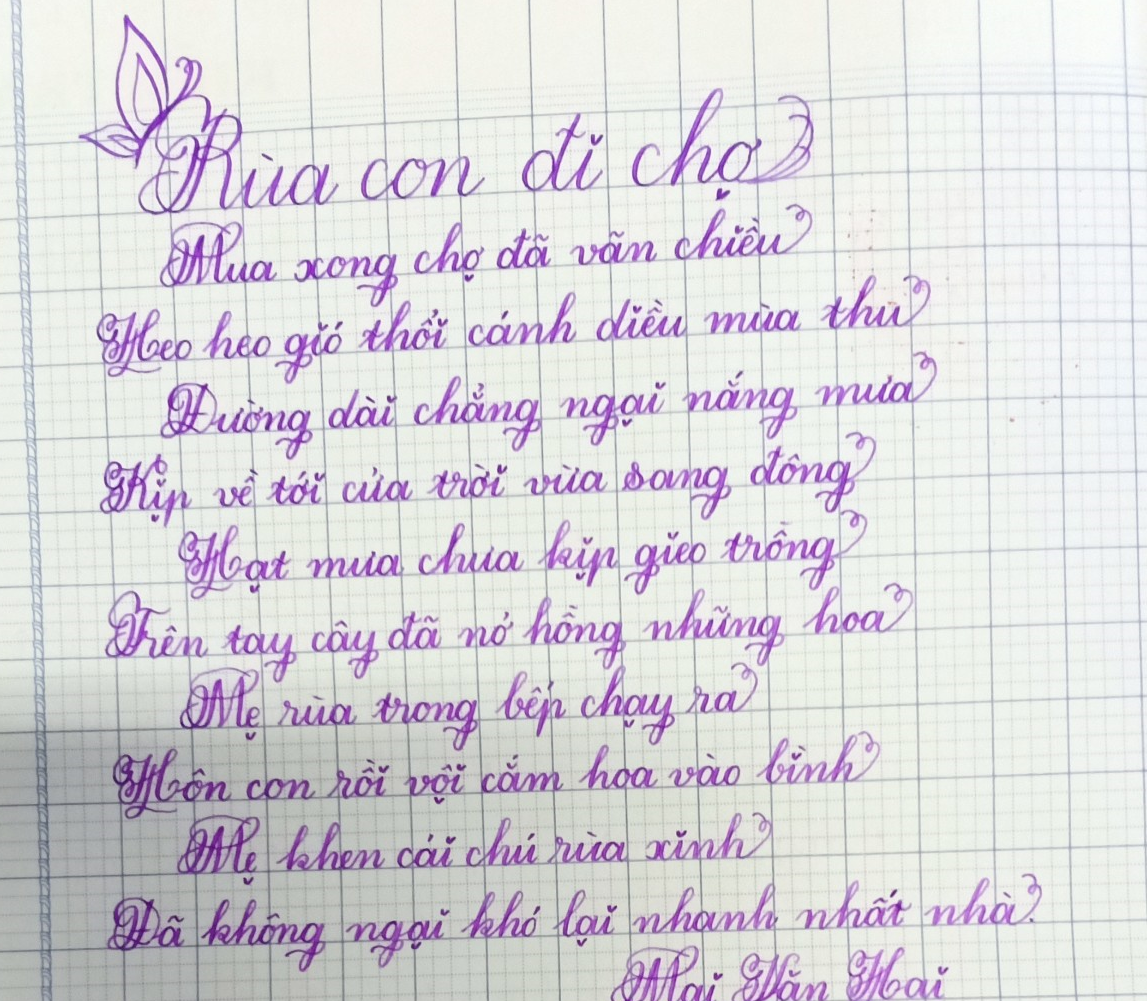 Rùa con đi chợ
Mua xong chợ đã vãn chiều
Heo heo gió thổi cánh diều mùa thu
Đường dài chẳng ngại nắng mưa
Kịp về tới cửa trời vừa sang đông
Hạt mua chưa kịp gieo trồng
Trên tay cây đã nở hồng những hoa
Mẹ rùa trong bếp chạy ra
Hôn con rồi vội cắm hoa vào bình
Mẹ khen cái chú rùa xinh
Đã không ngại khó lại nhanh nhất nhà.
Mai Văn Hai